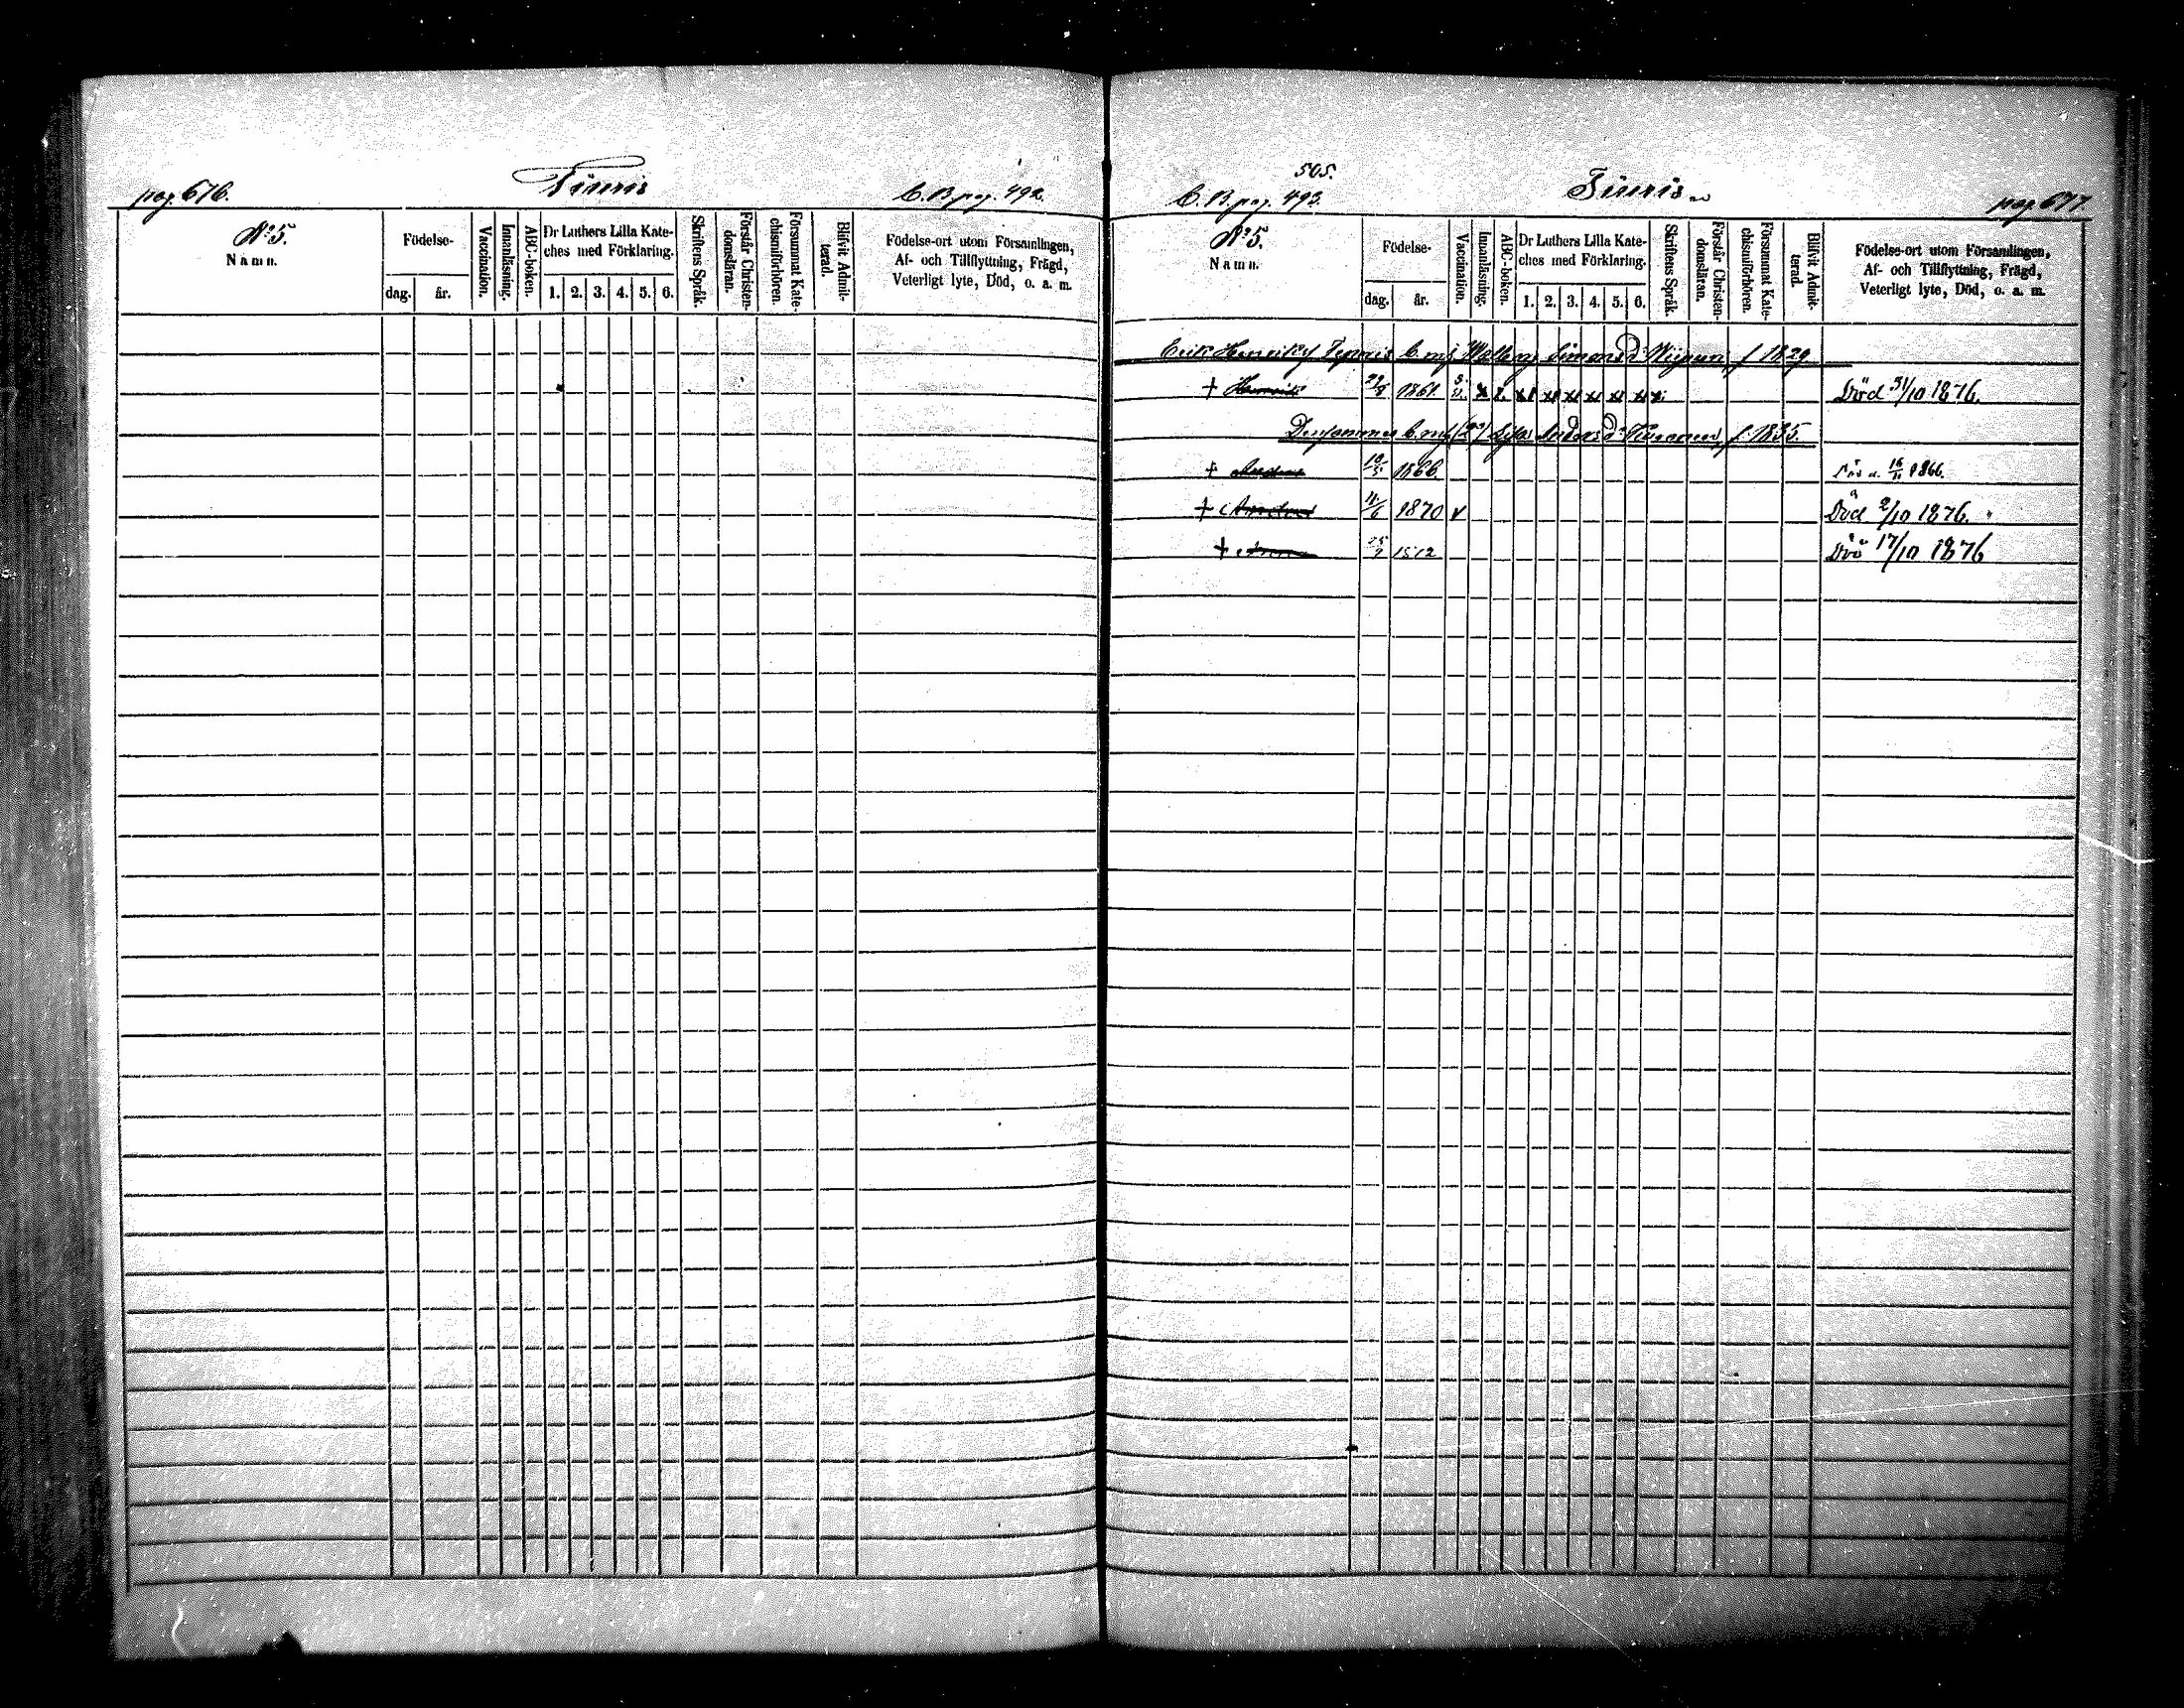 pag. 676.
C. B. pag. 492.
No 5.
Namn.
Födelse-
dag.
år.
Vaccination.
Innanläsning.
ABC-boken.
Dr Luthers Lilla Kate-
ches med Förklaring.
1. 2. 3. 4. 5. 6.
Skriftens Språk.
Förstår Christen-
domsläran.
Försummat Kate-
chismiförhören.
Blifvit Admit-
terad.
Födelse-ort utom Församlingen,
Af- och Tillflyttning, Frägd,
Veterligt lyte, Död, o. a. m.
505.
C. B. pag. 493.
pag. 677
No 5.
Namn.
Födelse-
dag.
år.
Vaccination.
Innanläsning.
ABC-boken.
Dr Luthers Lilla Kate-
ches med Förklaring.
1. 2. 3. 4. 5. 6.
Skriftens Språk.
Förstår Christen-
domsläran.
Försummat Kate-
chismiförhören.
Blifvit Admit-
terad.
Födelse-ort utom Församlingen,
Af- och Tillflyttning, Frägd,
Veterligt lyte, Död, o. a. m.
Erik Simons d:r f. 1829
+ Henrik 1861. Död 31/10 1876.
Densammes Anders d:r f. 1835.
+ 1866. 1866.
+ 11/6 1870 v Död 2/10 1876.
+ Anna Död 17/10 1876